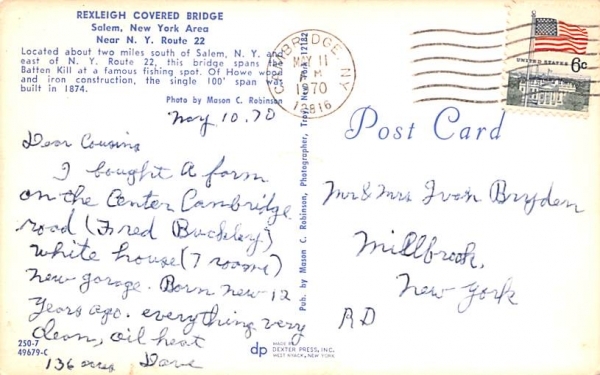 REXLEIGH COVERED BRIDGE
Salem, New York Area
Near N. Y. Route 22
Located about two miles south of Salem, N. Y. and
east of N. Y. Route 22, this bridge spans the
Batten Kill at a famous fishing spot. Of Howe wood
and iron construction, the single 100' span
built in 1874.
Photo by Mason C. Robinson
May 10. 70
Dear Cousins
I bought a farm
on the Center Cambridge
road (Fred Buckley)
white house (7 rooms)
new garage. Barn new 12
years ago. everything very
clean, oil heat
136 acres Dave
250-7
49679-C
Pub. by Mason C. Robinson, Photographer, Troy, New York 12182
dp
MADE BY
DEXTER PRESS, INC.
WEST NYACK, NEW YORK
CAMBRIDGE, NY
MAY 11
PM
1970
12816
UNITED STATES 6c
Post Card
Mr & Mrs Ivan Bryden
Millbrook,
New York
RD